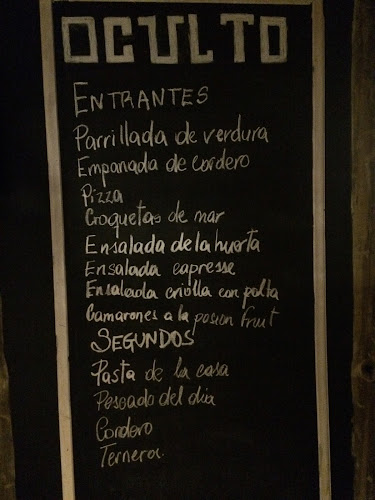 OCULTO
ENTRANTES
Parrillada de verdura
Empanada de cordero
Pizza
Croquetas de mar
Ensalada de la huerta
Ensalada capresse
Ensalada criolla con palta
Camarones a la pasion fruit
SEGUNDOS
Pasta de la casa
Pescado del dia
Cordero
Ternera.